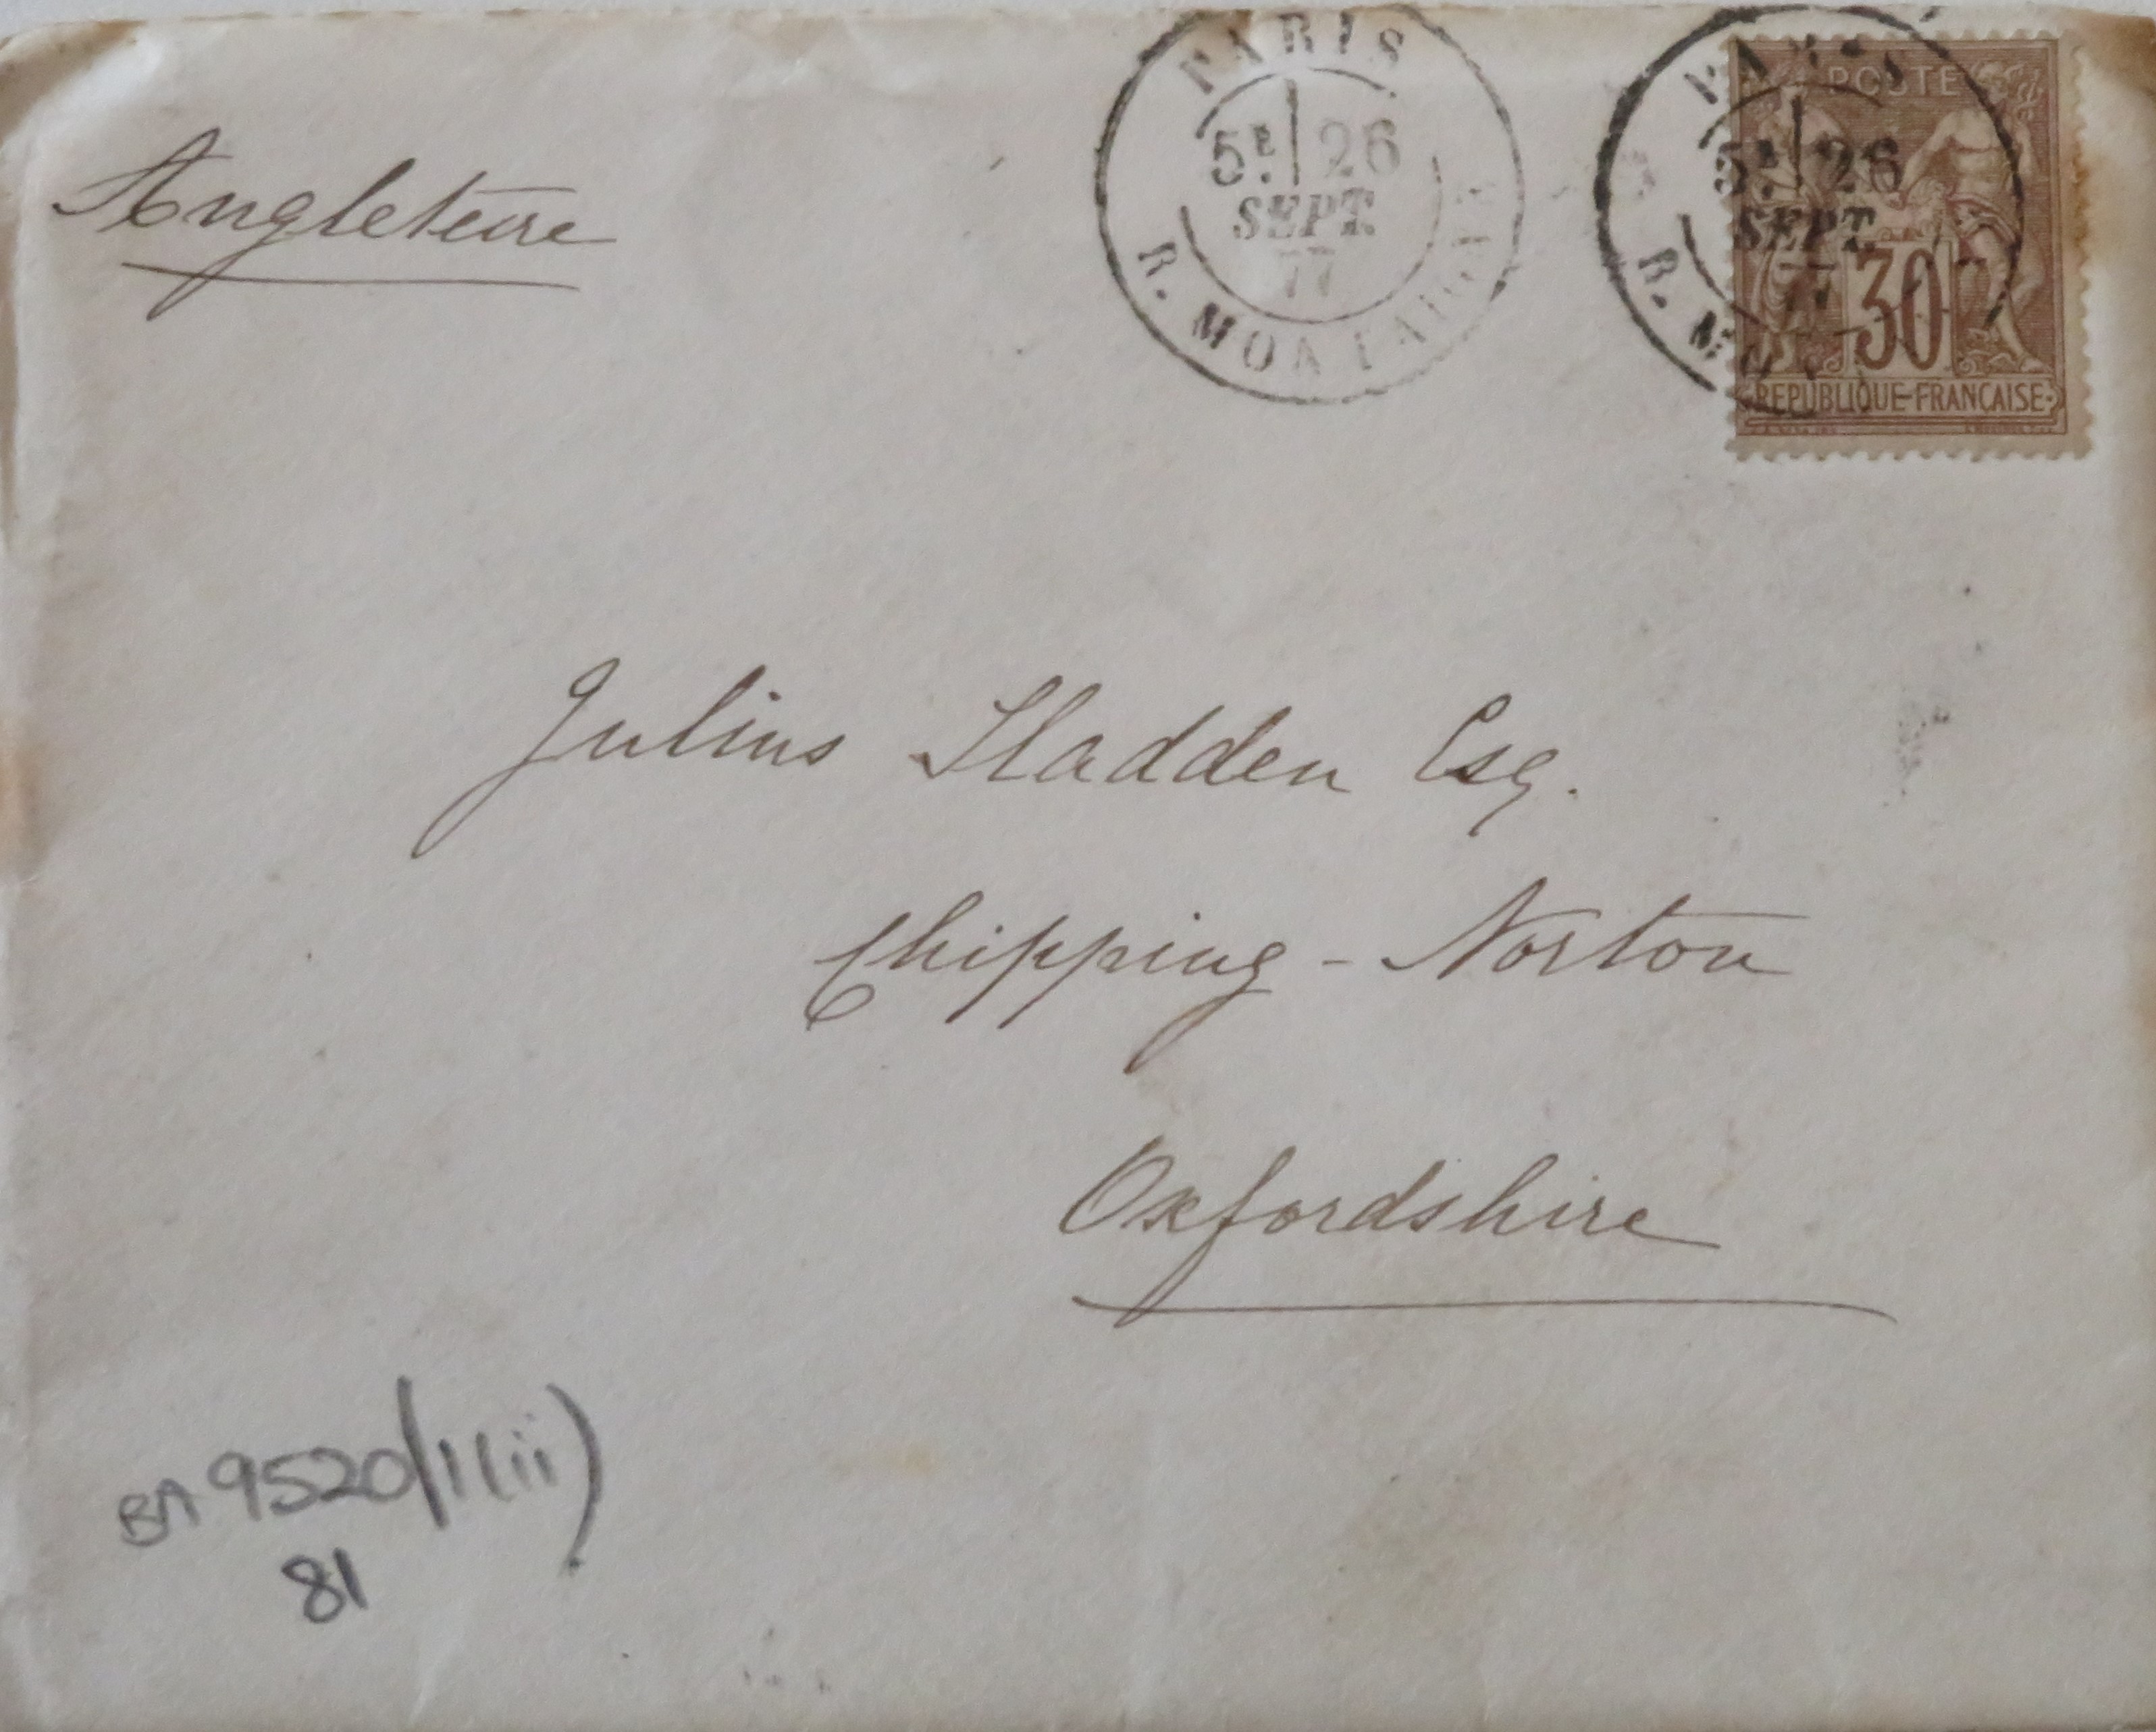 Angleterre
PARIS
5E 26
SEPT.
77
R. MONTAIGNE
PARIS
5E 26
SEPT.
77
POSTE
30
REPUBLIQUE-FRANÇAISE
Julius Sladden Esq.
Chipping - Norton
Oxfordshire
BA 9520/1(ii)
81